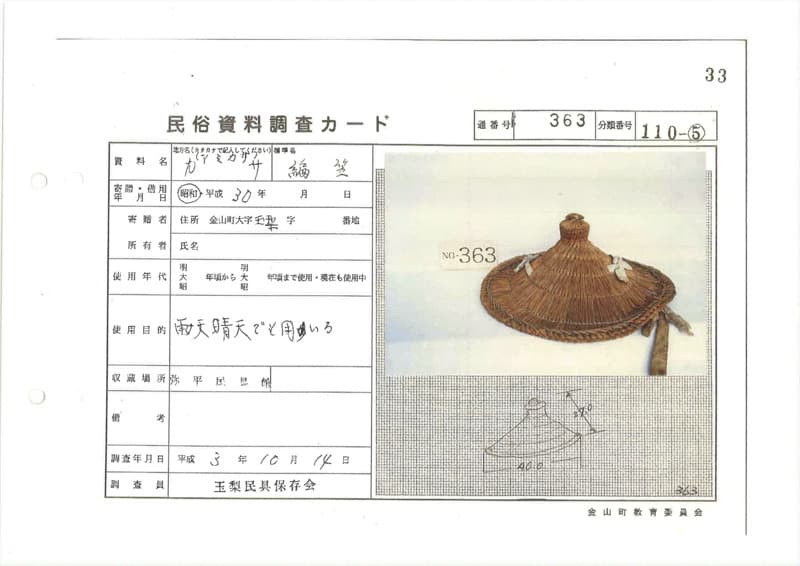 33
民俗資料調査カード
通番号 363 分類番号 110-⑤
資料名 地方名(カタカナで記入してください) カサ 標準名 編笠
寄贈・借用年月日 昭和・平成 30年 月 日
寄贈者 住所 金山町大字玉梨字 番地
所有者 氏名
使用年代 明大昭 年頃から 明大昭 年頃まで使用・現在も使用中
使用目的 雨天晴天でも用いる
収蔵場所 弥平民具館
備考
調査年月日 平成 3年 10月 14日
調査員 玉梨民具保存会
NO-363
27.0
40.0
363
金山町教育委員会